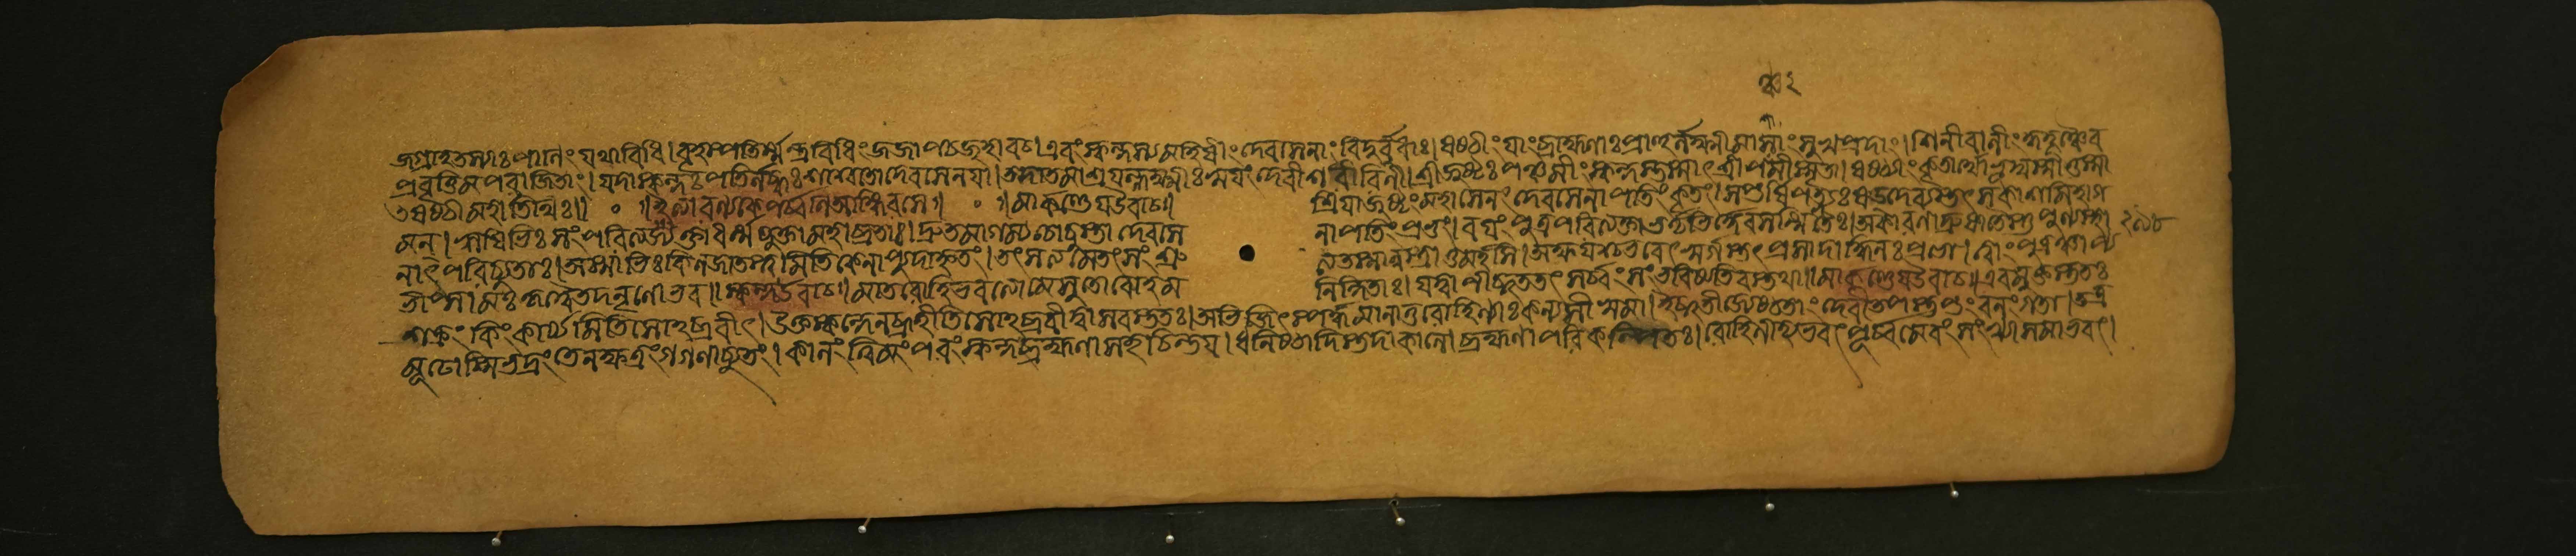 ৯২
জগ্রাহ তস্যাঃ পাণিং যথাবিধি। বৃহস্পতির্ম্মন্ত্রবিধিং জজাপ চ জুহাব চ। এবং স্কন্দস্য মহিষীং দেবসেনাং বিদুর্বুধাঃ। ষষ্ঠীং যাং ব্রাহ্মণাঃ প্রাহুর্লক্ষ্মীমাসাং সুখপ্রদাং। শিনীবালীং কুহূঞ্চৈব
প্রবৃত্তিমপরাজিতাং। যদা স্কন্দঃ পতির্লব্ধঃ শাশ্বতো দেবসেনয়া। তদা তমাশ্রয়ল্লক্ষ্মীঃ স্বয়ং দেবী শরীরিণী। শ্রীজুষ্টঃ পঞ্চমীং স্কন্দস্তস্মাৎ শ্রীপঞ্চমী স্মৃতা। ষষ্ঠ্যাং কৃতার্থোঽভূদ্যস্মাত্তস্মা
ত্ ষষ্ঠী মহাতিথিঃ॥ ॰ ॥ ইত্যারণ্যকে পর্ব্বণি আঙ্গিরসে॥ ॰ ॥ মার্কণ্ডেয় উবাচ॥ শ্রিয়া জুষ্টং মহাসেনং দেবসেনাপতিং কৃতং। সপ্তর্ষিপত্ন্যঃ ষড্দেব্যস্তৎসকাশমিহাগ
মন্। ঋষিভিঃ সংপরিত্যক্তা ধর্ম্মযুক্তা মহাব্রতাঃ। দ্রুতমাগম্য চোচুস্তা দেবসেনাপতিং প্রভুং। বয়ং পুত্র পরিত্যক্তা ভর্ত্তৃভির্দ্দেবসম্মিতৈঃ। অকারণাদ্রুষা তৈস্তু পুণ্যস্থা
নাৎ পরিচ্যুতাঃ। অস্মাভিঃ কিল জাতস্ত্বমিতি কেনাপ্যুদাহৃতং। তৎ সত্যমেতৎ সংশ্রুত্য তস্মান্নস্ত্রাতুমর্হসি। অক্ষয়শ্চ ভবেৎ স্বর্গস্ত্বৎপ্রসাদাদ্ধি নঃ প্রভো। ত্বাং পুত্রঞ্চাপ্য
ভীপ্সামঃ কৃত্বৈতদনৃণো ভব॥ স্কন্দ উবাচ॥ মাতরো হি ভবত্যো মে সুতো বোঽহমনিন্দিতাঃ। যচ্চাপীচ্ছত তৎ সর্ব্বং সংভবিষ্যতি বস্তথা॥ মার্কণ্ডেয় উবাচ॥ এবমুক্তস্ততঃ
শক্রং কিং কার্য্যমিতি সোঽব্রবীৎ। উক্তস্কন্দেন ব্রূহীতি সোঽব্রবীদ্বাসবস্ততঃ। অভিজিৎ স্পর্দ্ধমানা তু রোহিণ্যাঃ কন্যসী স্বসা। ইচ্ছন্তী জ্যেষ্ঠতাং দেবী তপস্তপ্তুং বনং গতা। তত্র
মূঢোস্মি ভদ্রং তে নক্ষত্রং গগণাচ্চ্যুতং। কালং ত্বিমং পরং স্কন্দ ব্রহ্মণা সহ চিন্তয়। ধনিষ্ঠাদিস্তদা কালো ব্রহ্মণা পরিকল্পিতঃ। রোহিণ্যাদ্যভবৎ পূর্ব্বমেবং সংখ্যা সমাভবৎ।